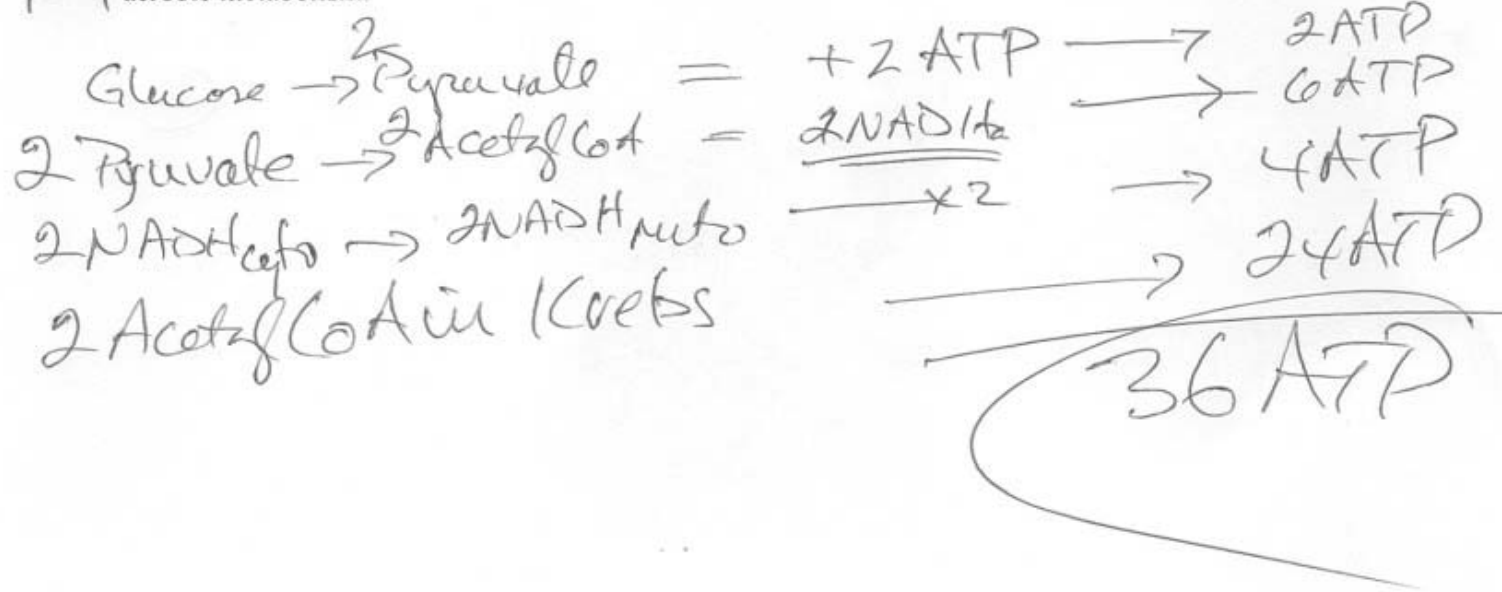 Glucose → 2 Pyruvate = +2 ATP → 2ATP
2 Pyruvate → 2 Acetyl CoA = 2NADH → 6ATP
2NADH cyto → 2NADH mito x2 → 4ATP
2 Acetyl CoA in Krebs → 24ATP
36 ATP